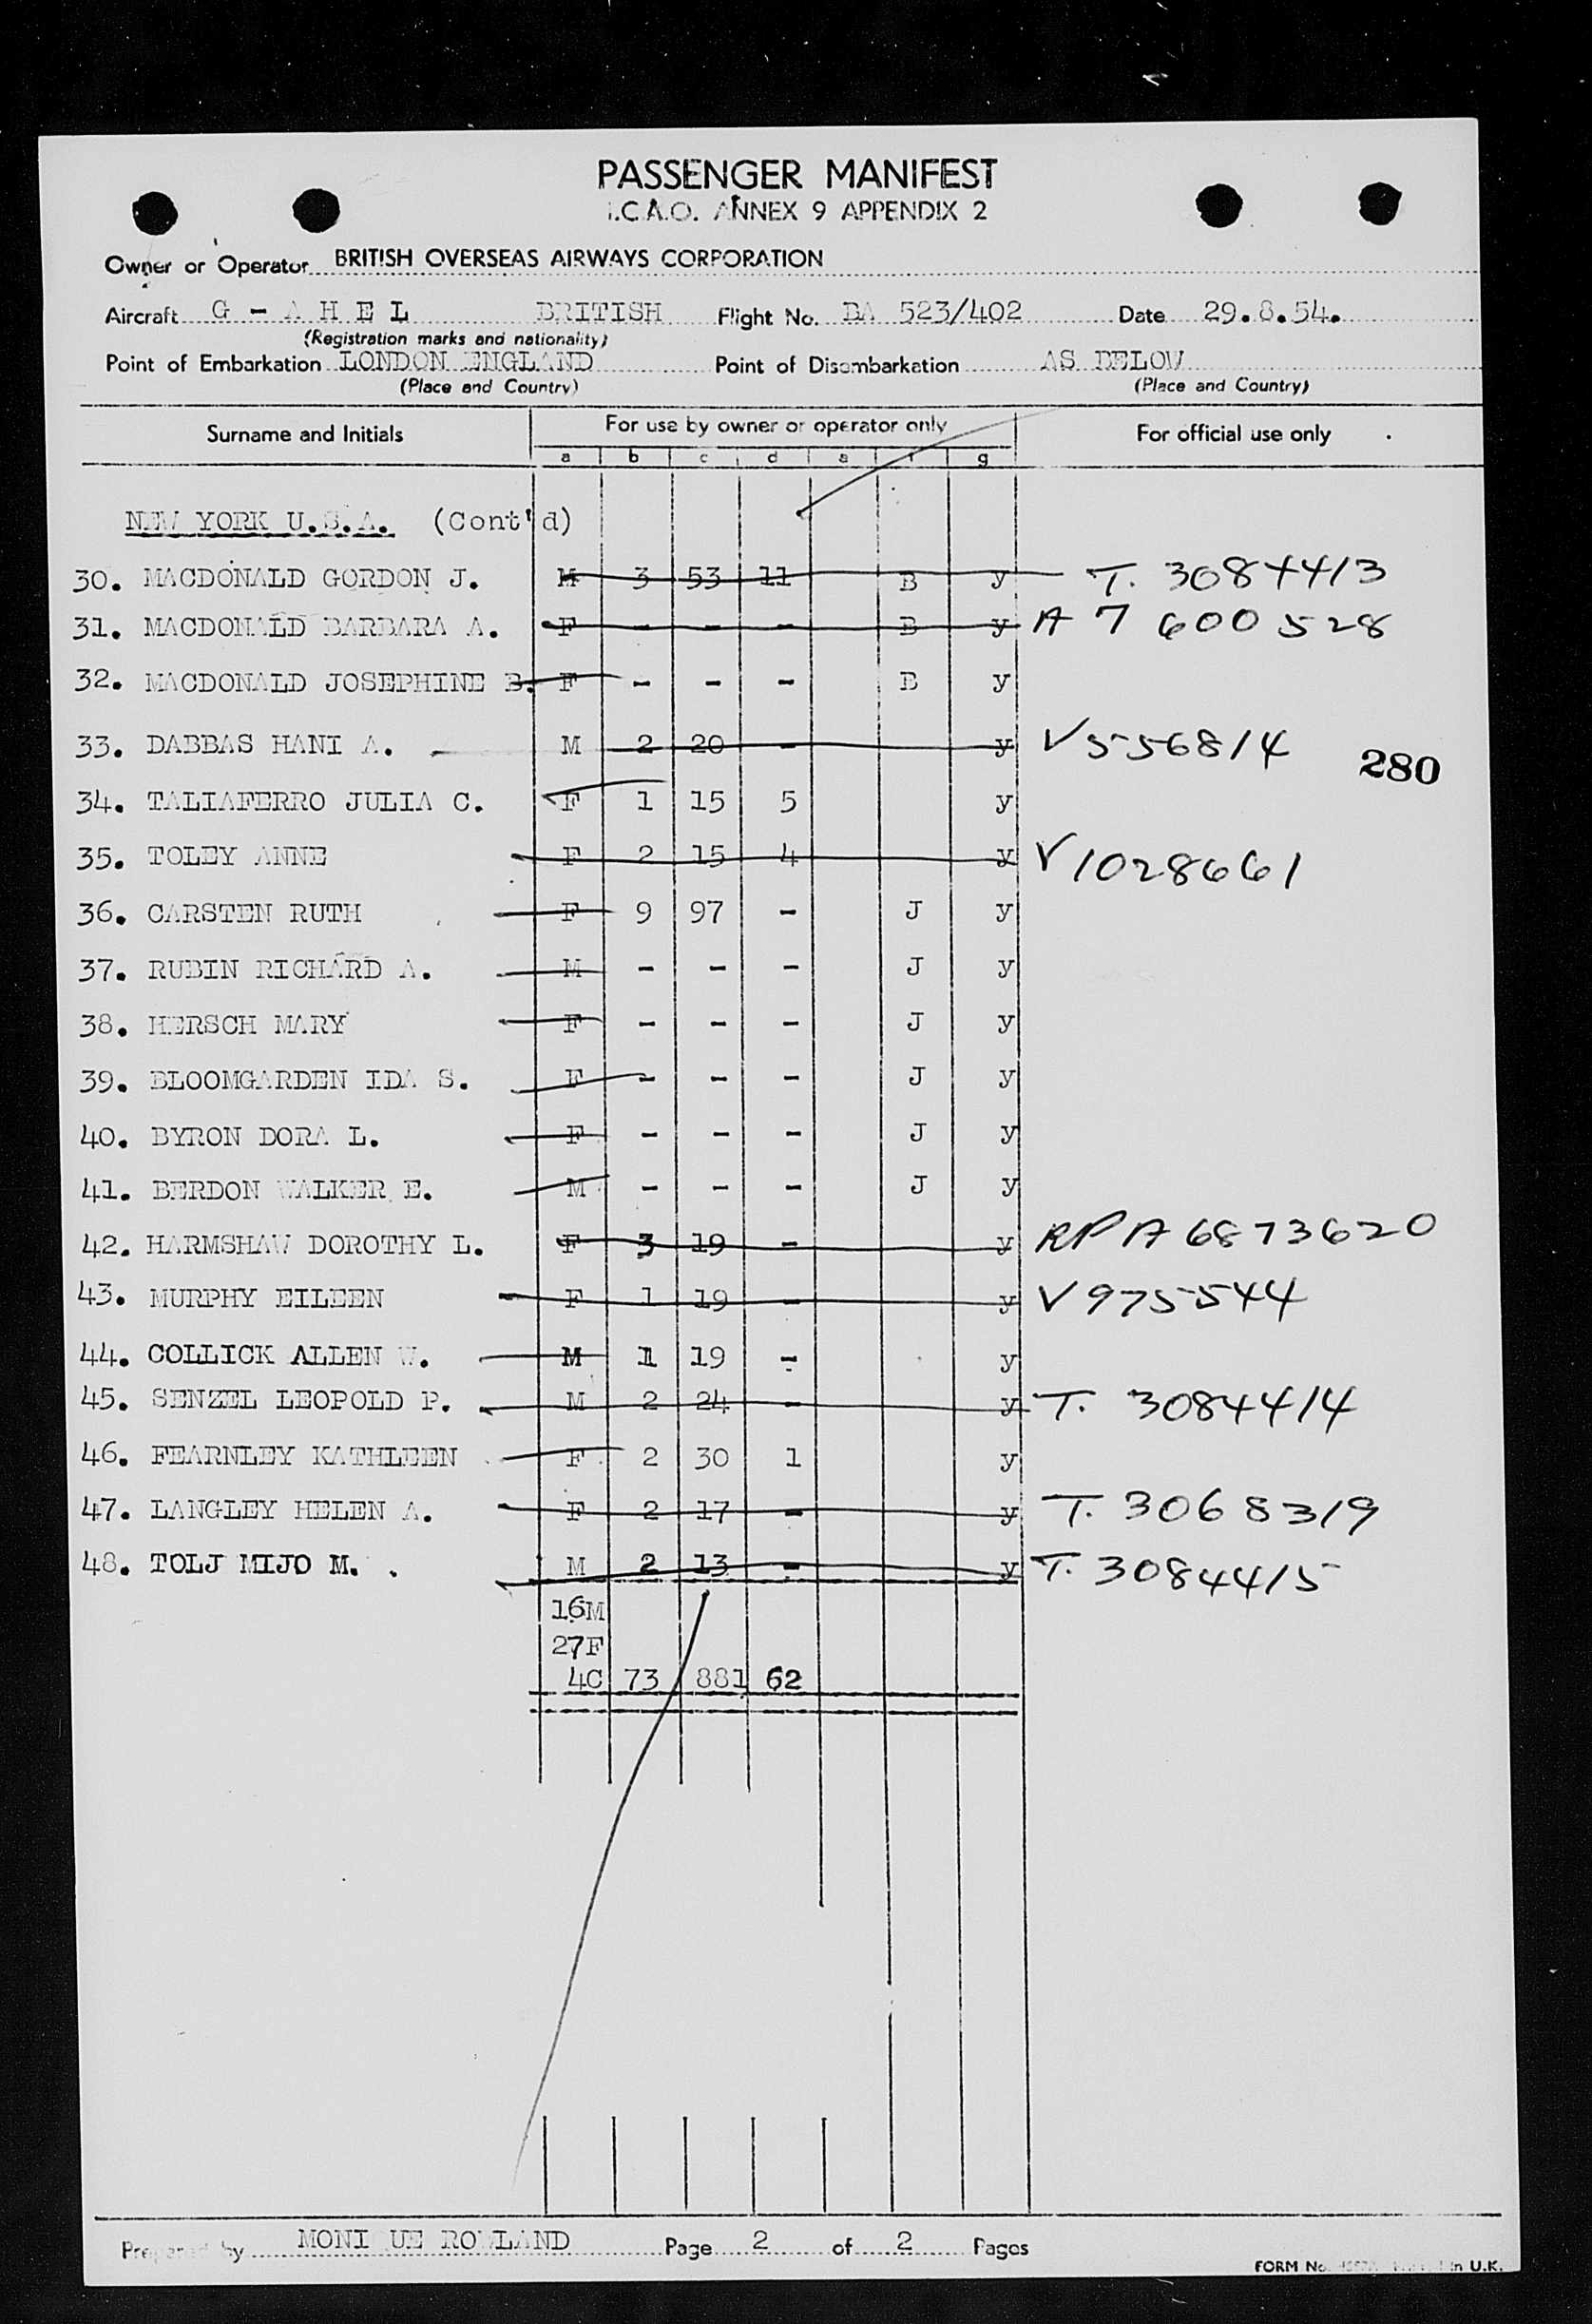 PASSENGER MANIFEST
I.C.A.O. ANNEX 9 APPENDIX 2
Owner or Operator BRITISH OVERSEAS AIRWAYS CORPORATION
Aircraft G - A H E L BRITISH Flight No. BA 523/402 Date 29.8.54.
(Registration marks and nationality)
Point of Embarkation LONDON ENGLAND Point of Disembarkation AS BELOW
(Place and Country) (Place and Country)
Surname and Initials For use by owner or operator only For official use only
a b c d e f g
NEW YORK U.S.A. (Cont'd)
30. MACDONALD GORDON J. M 3 53 11 B y T. 3084413
31. MACDONALD BARBARA A. F - - - B y A 7 600 528
32. MACDONALD JOSEPHINE B. F - - - B y
33. DABBAS HANI A. M 2 20 - y V556814
280
34. TALIAFERRO JULIA C. F 1 15 5 y
35. TOLEY ANNE F 2 15 4 y V1028661
36. CARSTEN RUTH F 9 97 - J y
37. RUBIN RICHARD A. M - - - J y
38. HERSCH MARY F - - - J y
39. BLOOMGARDEN IDA S. F - - - J y
40. BYRON DORA L. F - - - J y
41. BERDON WALKER E. M - - - J y
42. HARMSHAW DOROTHY L. F 3 19 - y RP A6873620
43. MURPHY EILEEN F 1 19 - y V975544
44. COLLICK ALLEN W. M 1 19 - y
45. SENZEL LEOPOLD P. M 2 24 - y T. 3084414
46. FEARNLEY KATHLEEN F 2 30 1 y
47. LANGLEY HELEN A. F 2 17 - y T. 3068319
48. TOLJ MIJO M. M 2 13 - y T. 3084415
16M
27F
4C 73 881 62
Prepared by MONI UE ROWLAND Page 2 of 2 Pages
FORM No. in U.K.